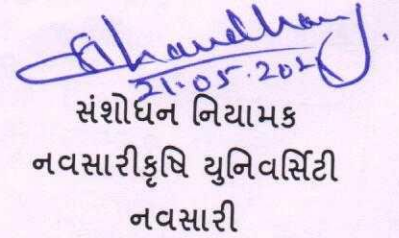 સંશોધન નિયામક
નવસારીકૃષિ યુનિવર્સિટી
નવસારી